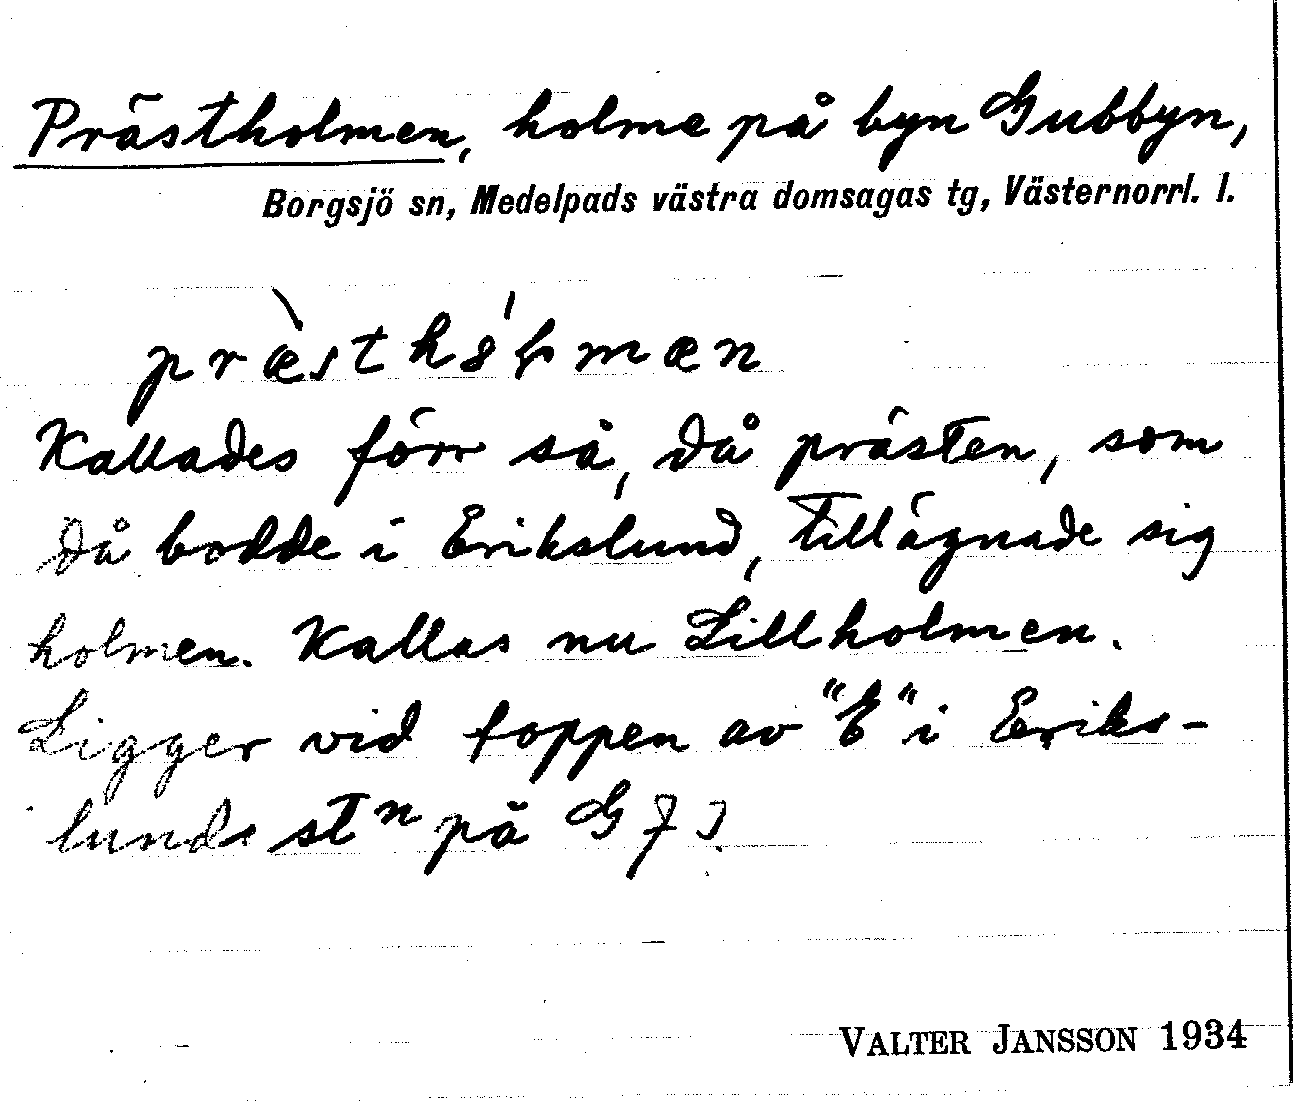 Prästholmen, holme på byn Gubbyn,
Borgsjö sn, Medelpads västra domsagas tg, Västernorrl. l.
Kallades förr så, då prästen, som
då bodde i Erikslund, tillägnade sig
holmen. Kallas nu Lillholmen.
Ligger vid toppen av "E" i Eriks-
lunds stn på G
VALTER JANSSON 1934